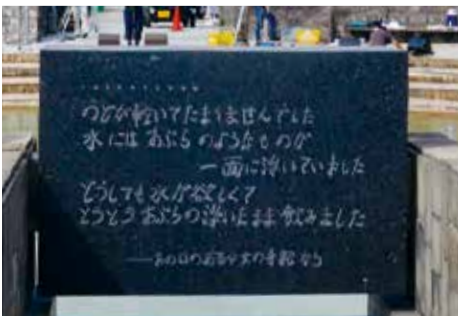 ・・・・・・・・・・・
のどが乾いてたまりませんでした
水にはあぶらのようなものが
一面に浮いていました
どうしても水が欲しくて
とうとうあぶらの浮いたまま飲みました
―あの日のある少女の手記から